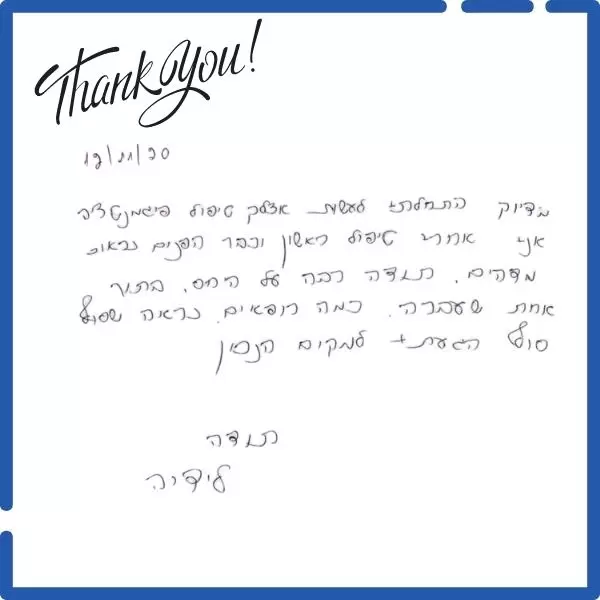 Thank You!
12/11/20
בדיוק התחלתי לעשות אצלך טיפול פיגמנטציה
אני אחרי טיפול ראשון וכבר הפנים נראות
מדהים. תודה רבה על היחס, בתור
אחת שעברה כמה רופאים נראה שסוף
סוף הגעתי למקום הנכון
תודה
לידיה